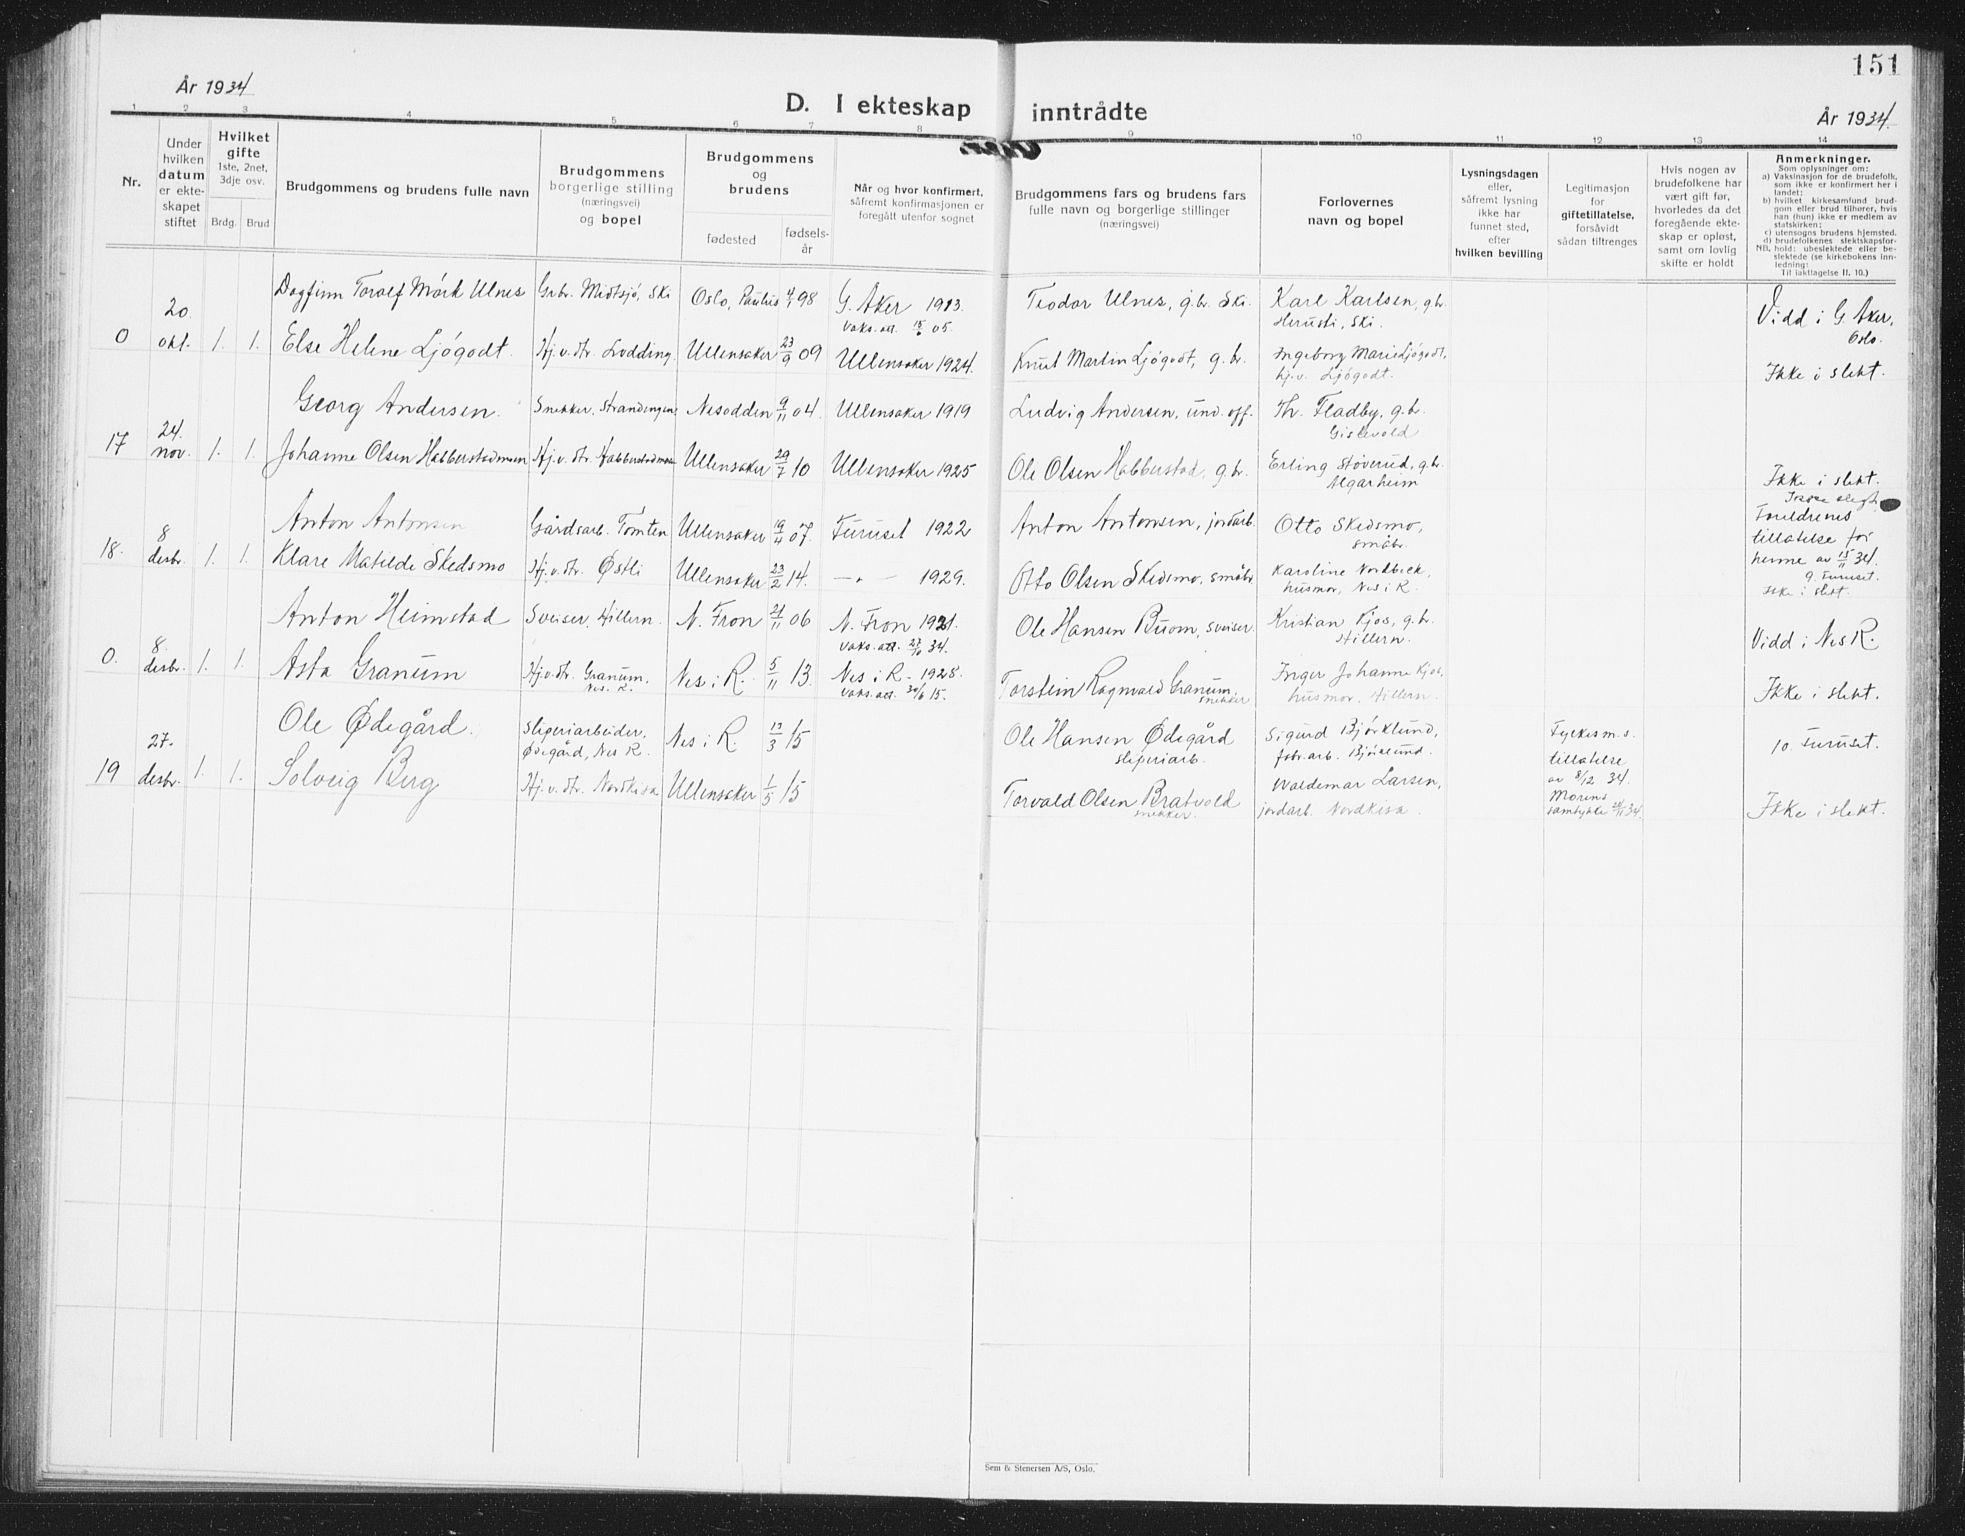 151
År 1934
D. I ekteskap inntrådte
År 1934.
1 2 3 4 5 6 7 8 9 10 11 12 13 14
Nr.
Under
hvilken
datum
er ekte-
skapet
stiftet
Hvilket
gifte
1ste, 2net,
3dje osv.
Brdg. Brud
Brudgommens og brudens fulle navn
Brudgommens
borgerlige stilling
(næringsvei)
og bopel
Brudgommens
og
brudens
fødested
fødsels-
år
Når og hvor konfirmert,
såfremt konfirmasjonen er
foregått utenfor sognet
Brudgommens fars og brudens fars
fulle navn og borgerlige stillinger
(næringsvei)
Forlovernes
navn og bopel
Lysningsdagen
eller,
såfremt lysning
ikke har
funnet sted,
efter
hvilken bevilling
Legitimasjon
for
giftetillatelse,
forsåvidt
sådan tiltrenges
Hvis nogen av
brudefolkene har
vært gift før,
hvorledes da det
foregående ekte-
skap er opløst,
samt om lovlig
skifte er holdt
Anmerkninger.
Som oplysninger om:
a) Vaksinasjon for de brudefolk,
som ikke er konfirmert her i
landet;
b) hvilket kirkesamfund brud-
gom eller brud tilhører, hvis
han (hun) ikke er medlem av
statskirken;
c) utensogns brudens hjemsted.
d) brudefolkenes slektskapsfor-
NB. hold: ubeslektede eller be-
slektede (se kirkebokens inn-
ledning:
Til iakttagelse II. 10.)
0 20. okt. 1. 1.
Dagfinn Toralf Mörk Ulnes Grbr. Midtsjø, Ski Oslo, Paulus 4/1 98 G. Aker 1913. Teodor Ulnes, g.br. Ski. Karl Karlsen, g.br.
Vaks.att. 15/6 05. Herusti, Ski. Vidd i G. Aker,
Oslo.
Else Helene Ljøgodt. Hj.v.dtr. Lodding. Ullensaker 23/9 09 Ullensaker 1924. Knut Martin Ljøgodt, g.br. Ingeborg Marie Ljøgodt,
hj.v. Ljøgodt. Ikke i slekt.
17 24. nov. 1. 1.
Georg Andersen. Snekker, Strandengen Nesodden 9/11 04. Ullensaker 1919 Ludvig Andersen, und.off. Th. Fladby, g.br.
Gislevold
Johanne Olsen Habberstadmoen Hj.v.dtr. Habberstadmoen Ullensaker 29/7 10 Ullensaker 1925 Ole Olsen Habberstad, g.br. Erling Støverud, g.br.
Algarheim Ikke i slekt.
18. 8 desbr. 1. 1.
Anton Antonsen Gårdsarb. Tomten Ullensaker 19/4 07. Furuset 1922 Anton Antonsen, jordarb. Otto Skedsmo,
småbr.
Foreldrenes
tillatelse for
henne av 15/11 34.
9. Furuset.
Ikke i slekt.
Klare Matilde Skedsmo Hj.v.dtr. Østli Ullensaker 23/2 14. — „ — 1929. Otto Olsen Skedsmo, småbr. Karoline Nordbeck,
husmor, Nes i R.
0. 8. desbr. 1. 1.
Anton Heimstad Sveiser, Hillern. N. Fron 21/11 06 N. Fron 1921. Ole Hansen Buom, sveiser. Kristian Kjos, g.br.
Vaks.att. 27/10 34. Hillern. Vidd i Nes R.
Asta Granum Hj.v.dtr. Granum, Nes i R. 5/11 13. Nes i R. - 1928. Torstein Ragnvald Granum, Inger Johanne Kjos,
Nes. R. Vaks.att. 30/6 15. snekker husmor. Hillern. Ikke i slekt.
19 27. desbr. 1. 1.
Ole Ødegård. Sliperiarbeider, Nes i R. 13/3 15 Ole Hansen Ødegård Sigurd Bjørklund, Fylkesm.s.
Ødegård, Nes R. sliperiarb. fabr.arb. Bjørklund. tillatelse 10. Furuset.
av 8/12 34.
Solveig Berg Hj.v.dtr. Nordkisa Ullensaker 1/5 15 Torvald Olsen Bratvold Waldemar Larsen, Morens
snekker. jordarb. Nordkisa. samtykke 24/11 34. Ikke i slekt.
Sem & Stenersen A/S, Oslo.